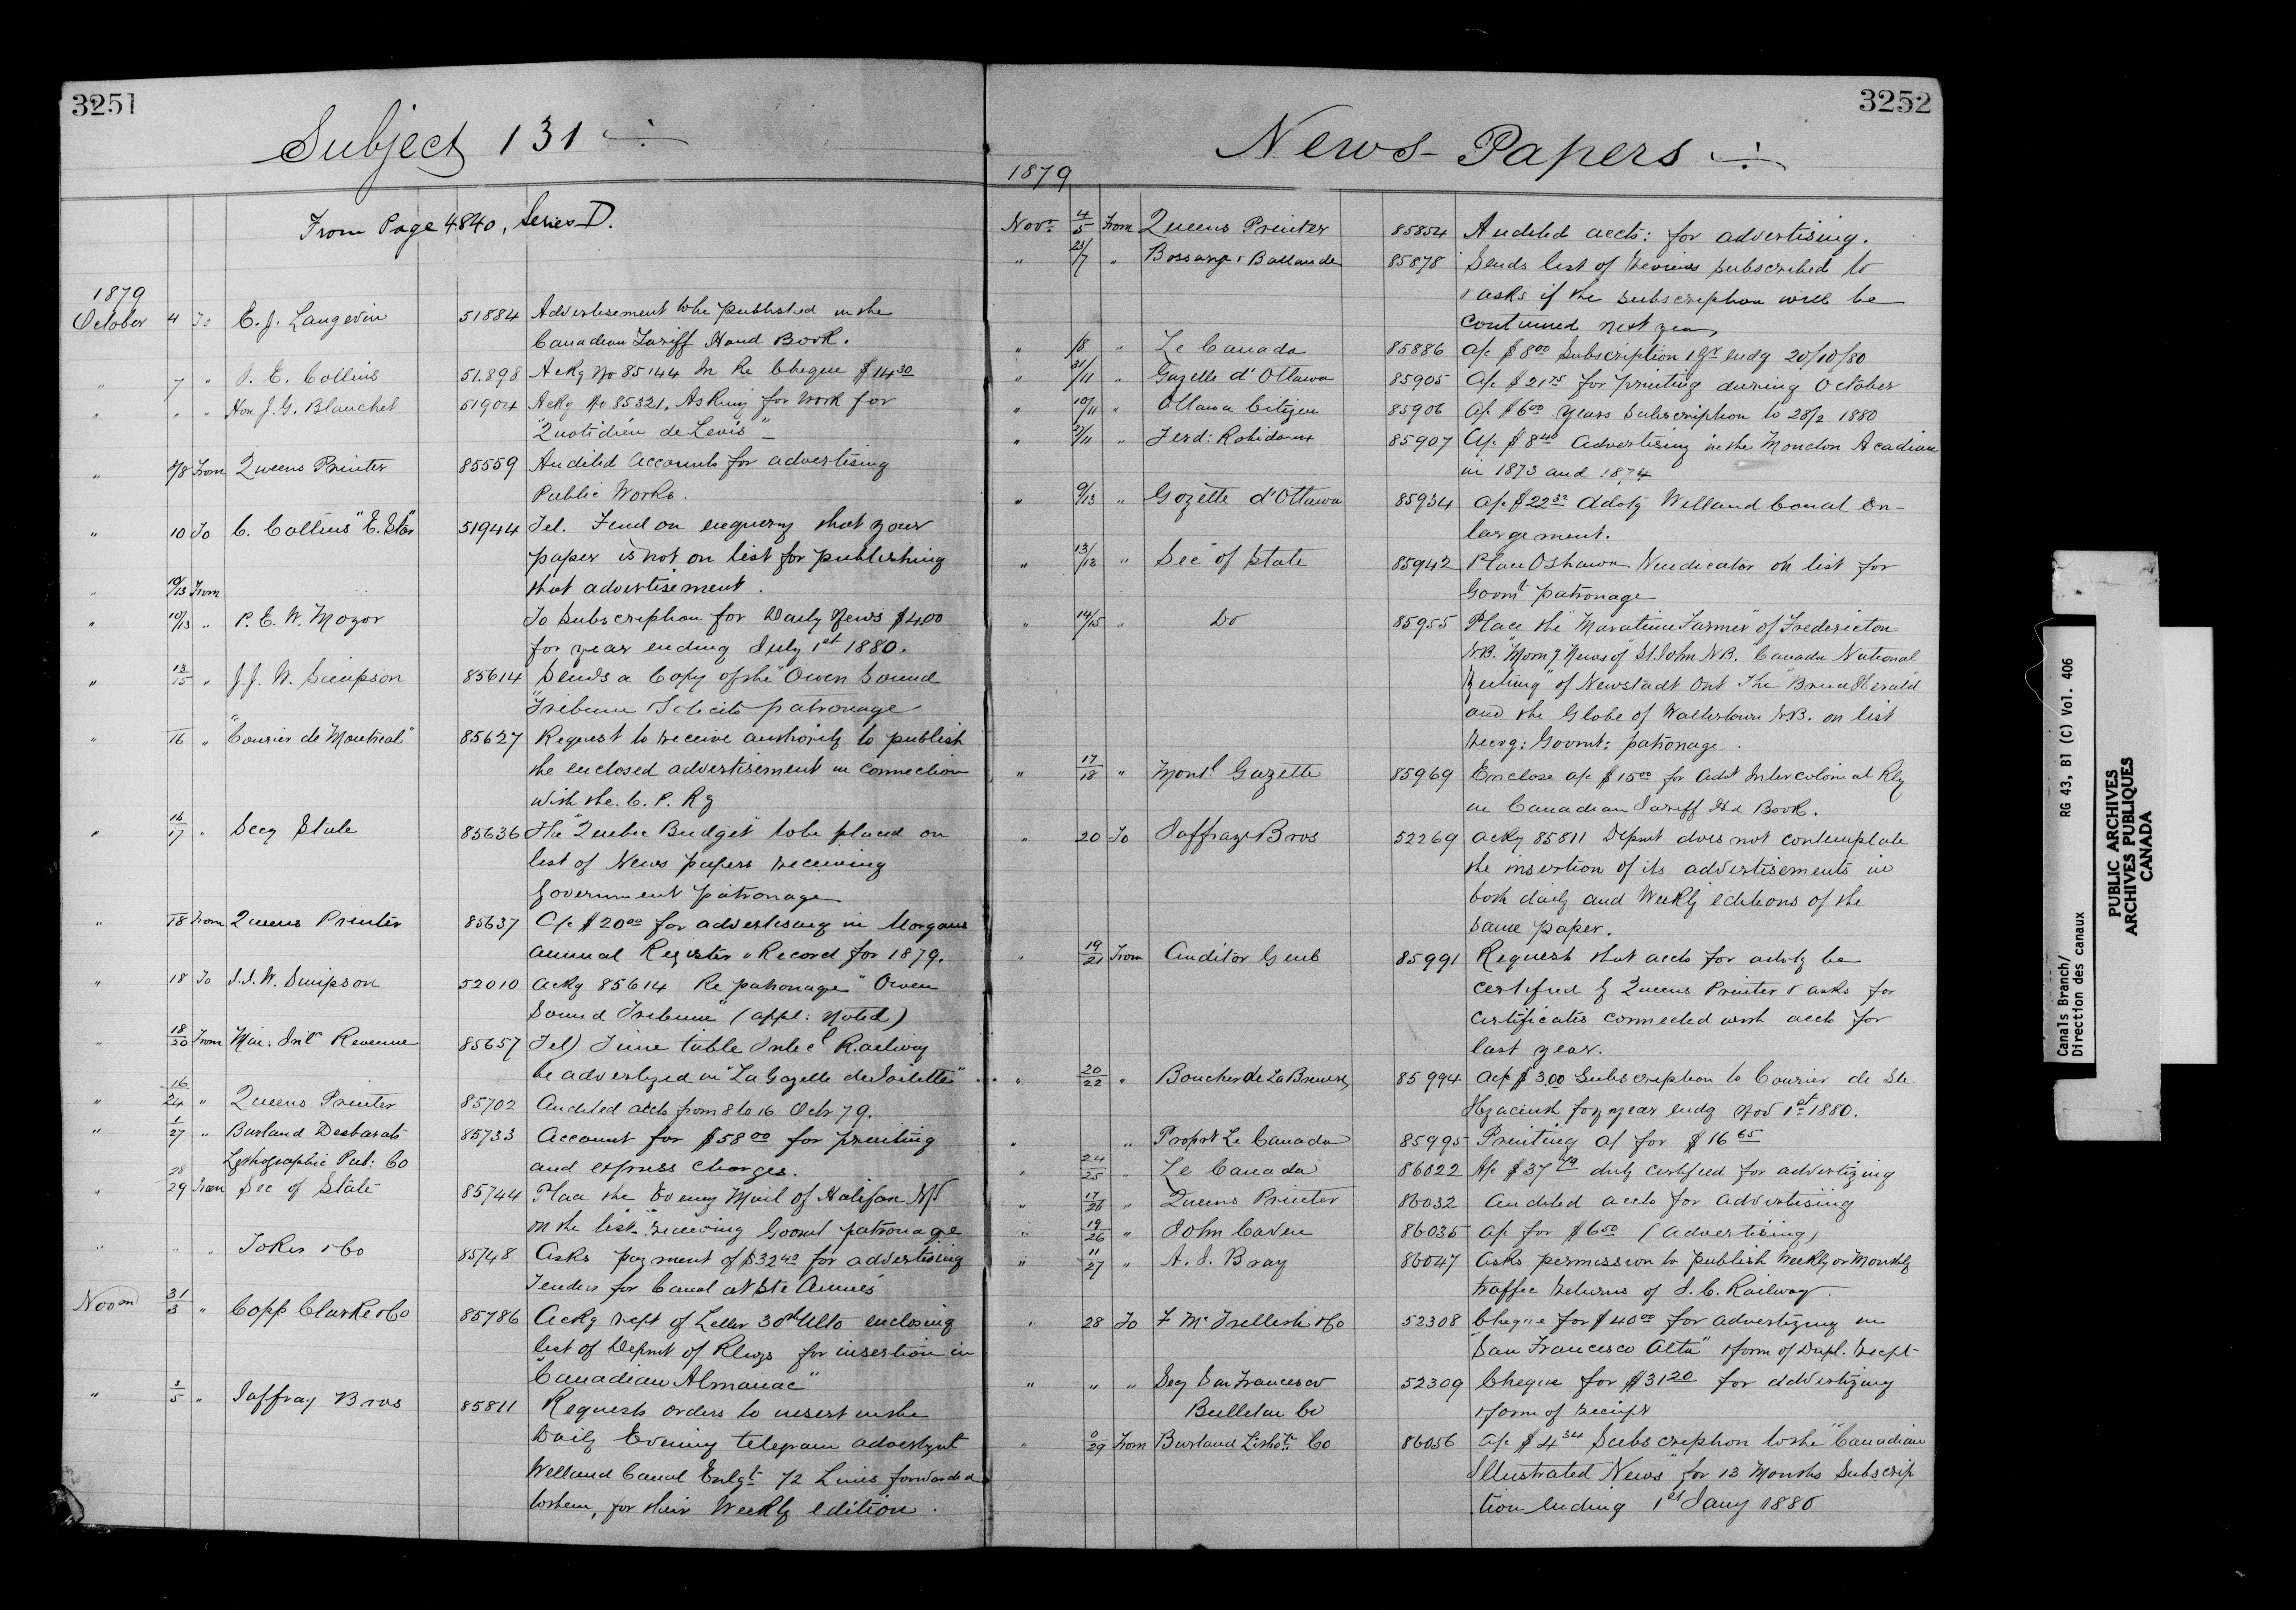 3251
Subject 131
From Page 4840, Series D.
1879
October 4 To E. J. Langevin 51884 Advertisement to be published in the
Canadian Tariff Hand Book.
" 7 " J. E. Collins 51.898 Ackg No 85144 In Re Cheque $14 30
" " " Hon J. G. Blanchet 51904 Ackg No 85321. Asking for work for
"Quotidien de Levis"
" 7/8 From Queens Printer 85559 Audited Accounts for advertising
Public Works.
" 10 To C. Collins "E. Star" 51944 Tel. Find on enquiry that your
paper is not on list for publishing
" 10/13 From that advertisement.
" 10/13 " P. E. W. Moyor To Subscription for Daily News $4.00
for year ending July 1st 1880.
" 13/15 " J. J. W. Simpson 85614 Sends a Copy of the "Owen Sound
Tribune" Solicits patronage
" 16 " "Courier de Montreal" 85627 Request to receive authority to publish
the enclosed advertisement in connection
with the C. P. Ry
" 16/17 " Secy State 85636 The "Quebec Budget" to be placed on
list of News papers receiving
Government patronage
" 18 From Queens Printer 85637 A/c $20 00 for advertising in Morgans
annual Register & Record for 1879.
" 18 To J. J. W. Simpson 52010 Ackg 85614 Re patronage "Owen
Sound Tribune" (appl: Noted)
" 18/20 From Min: Inld Revenue 85657 Tel) Time table Intercl Railway
be advertized in "La Gazette des Toilettes"
" 16/24 " Queens Printer 85702 Audited accts from 8 to 16 Octr 79.
" 1/27 " Burland Desbarats 85733 Account for $58 00 for printing
Lythographic Pub: Co and express charges.
" 28/29 From Sec of State 85744 Place the Eveng Mail of Halifax NS
on the list receiving Govmt patronage
" " " Toker & Co 85748 Asks payment of $32 40 for advertising
Tenders for Canal at Ste Annes
Novm 31/3 " Copp Clarke & Co 85786 Ackg rept of Letter 30th Ulto enclosing
list of Depmt of Rlwys for insertion in
"Canadian Almanac"
" 3/5 " Jaffray Bros 85811 Requests orders to insert in the
Daily Evening telegram advertzmt
Welland Canal Enlgt 72 Lines forwarded
to them, for their Weekly edition.
3252
News-Papers
1879
Novr 4/5 From Queens Printer 85854 Audited accts: for advertising.
" 23/7 " Bossange & Ballande 85878 Sends list of Reviews subscribed to
& asks if the subscription will be
continued next year
" /8 " Le Canada 85886 a/c $8 00 Subscription 1 yr endg 20/10/80
" 31/11 " Gazette d'Ottawa 85905 A/c $21 75 for printing during October
" 10/11 " Ottawa Citizen 85906 A/c $6 00 years subscription to 28/2 1880
" 27/11 " Ferd: Robidoux 85907 A/c $8 40 Advertising in the Moncton Acadian
in 1873 and 1874
" 9/13 " Gazette d'Ottawa 85934 A/c $22 32 Advtg Welland Canal En-
largement.
" 13/13 " Sec of State 85942 Place Oshawa Vindicator on list for
Govmt patronage
" 14/15 " Do 85955 Place the "Maratime Farmer" of Fredericton
N.B. "Morng News of St John N.B. "Canada National
Zeitung" of Newstadt Ont The "Bruce Herald"
and the Globe of Walkertown N.B. on list
recvg: Govmt: patronage.
" 17/18 " Montl Gazette 85969 Enclose a/c $15 00 for advt Intercolonial Rly
in Canadian Tariff Hd Book.
" 20 To Jaffray Bros 52269 Ackg 85811 Depmt does not contemplate
the insertion of its advertisements in
both daily and Weekly editions of the
same paper.
" 19/21 From Auditor Genl 85991 Request that accts for advtg be
certified by Queens Printer & asks for
certificates connected with accts for
last year.
" 20/22 " Boucher de La Bruere 85994 Act $3.00 Subscription to Courier de Ste
Hyacinth for year endg Nov 1st 1880.
" " Propr Le Canada 85995 Printing a/c for $16 65
" 24/25 " Le Canada 86022 A/c $37 79 duly certified for advertizing
" 17/26 " Queens Printer 86032 Audited accts for advertising
" 19/26 " John Caven 86035 a/c for $6 50 (advertising)
" 11/27 " A. J. Bray 86047 Asks permission to publish Weekly or Monthly
traffic returns of I. C. Railway.
" 28 To F McTrellish & Co 52308 Cheque for $40 00 for advertizing in
"San Francisco Alta" & form of Dupl. recpt
" " " Secy San Francisco 52309 Cheque for $31 20 for advertizing
Bulletin Co & form of receipt
" 0/29 From Burland Lithoc Co 86056 A/c $4 34 Subscription to the "Canadian
Illustrated News" for 13 Months Subscrip
tion ending 1st Jany 1880
Canals Branch/
Direction des canaux
RG 43, B1 (C) Vol. 406
PUBLIC ARCHIVES
ARCHIVES PUBLIQUES
CANADA